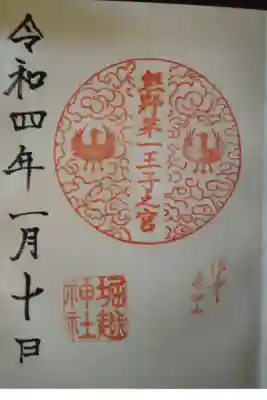 熊野第一王子之宮
堀越
神社
令和四年一月十日